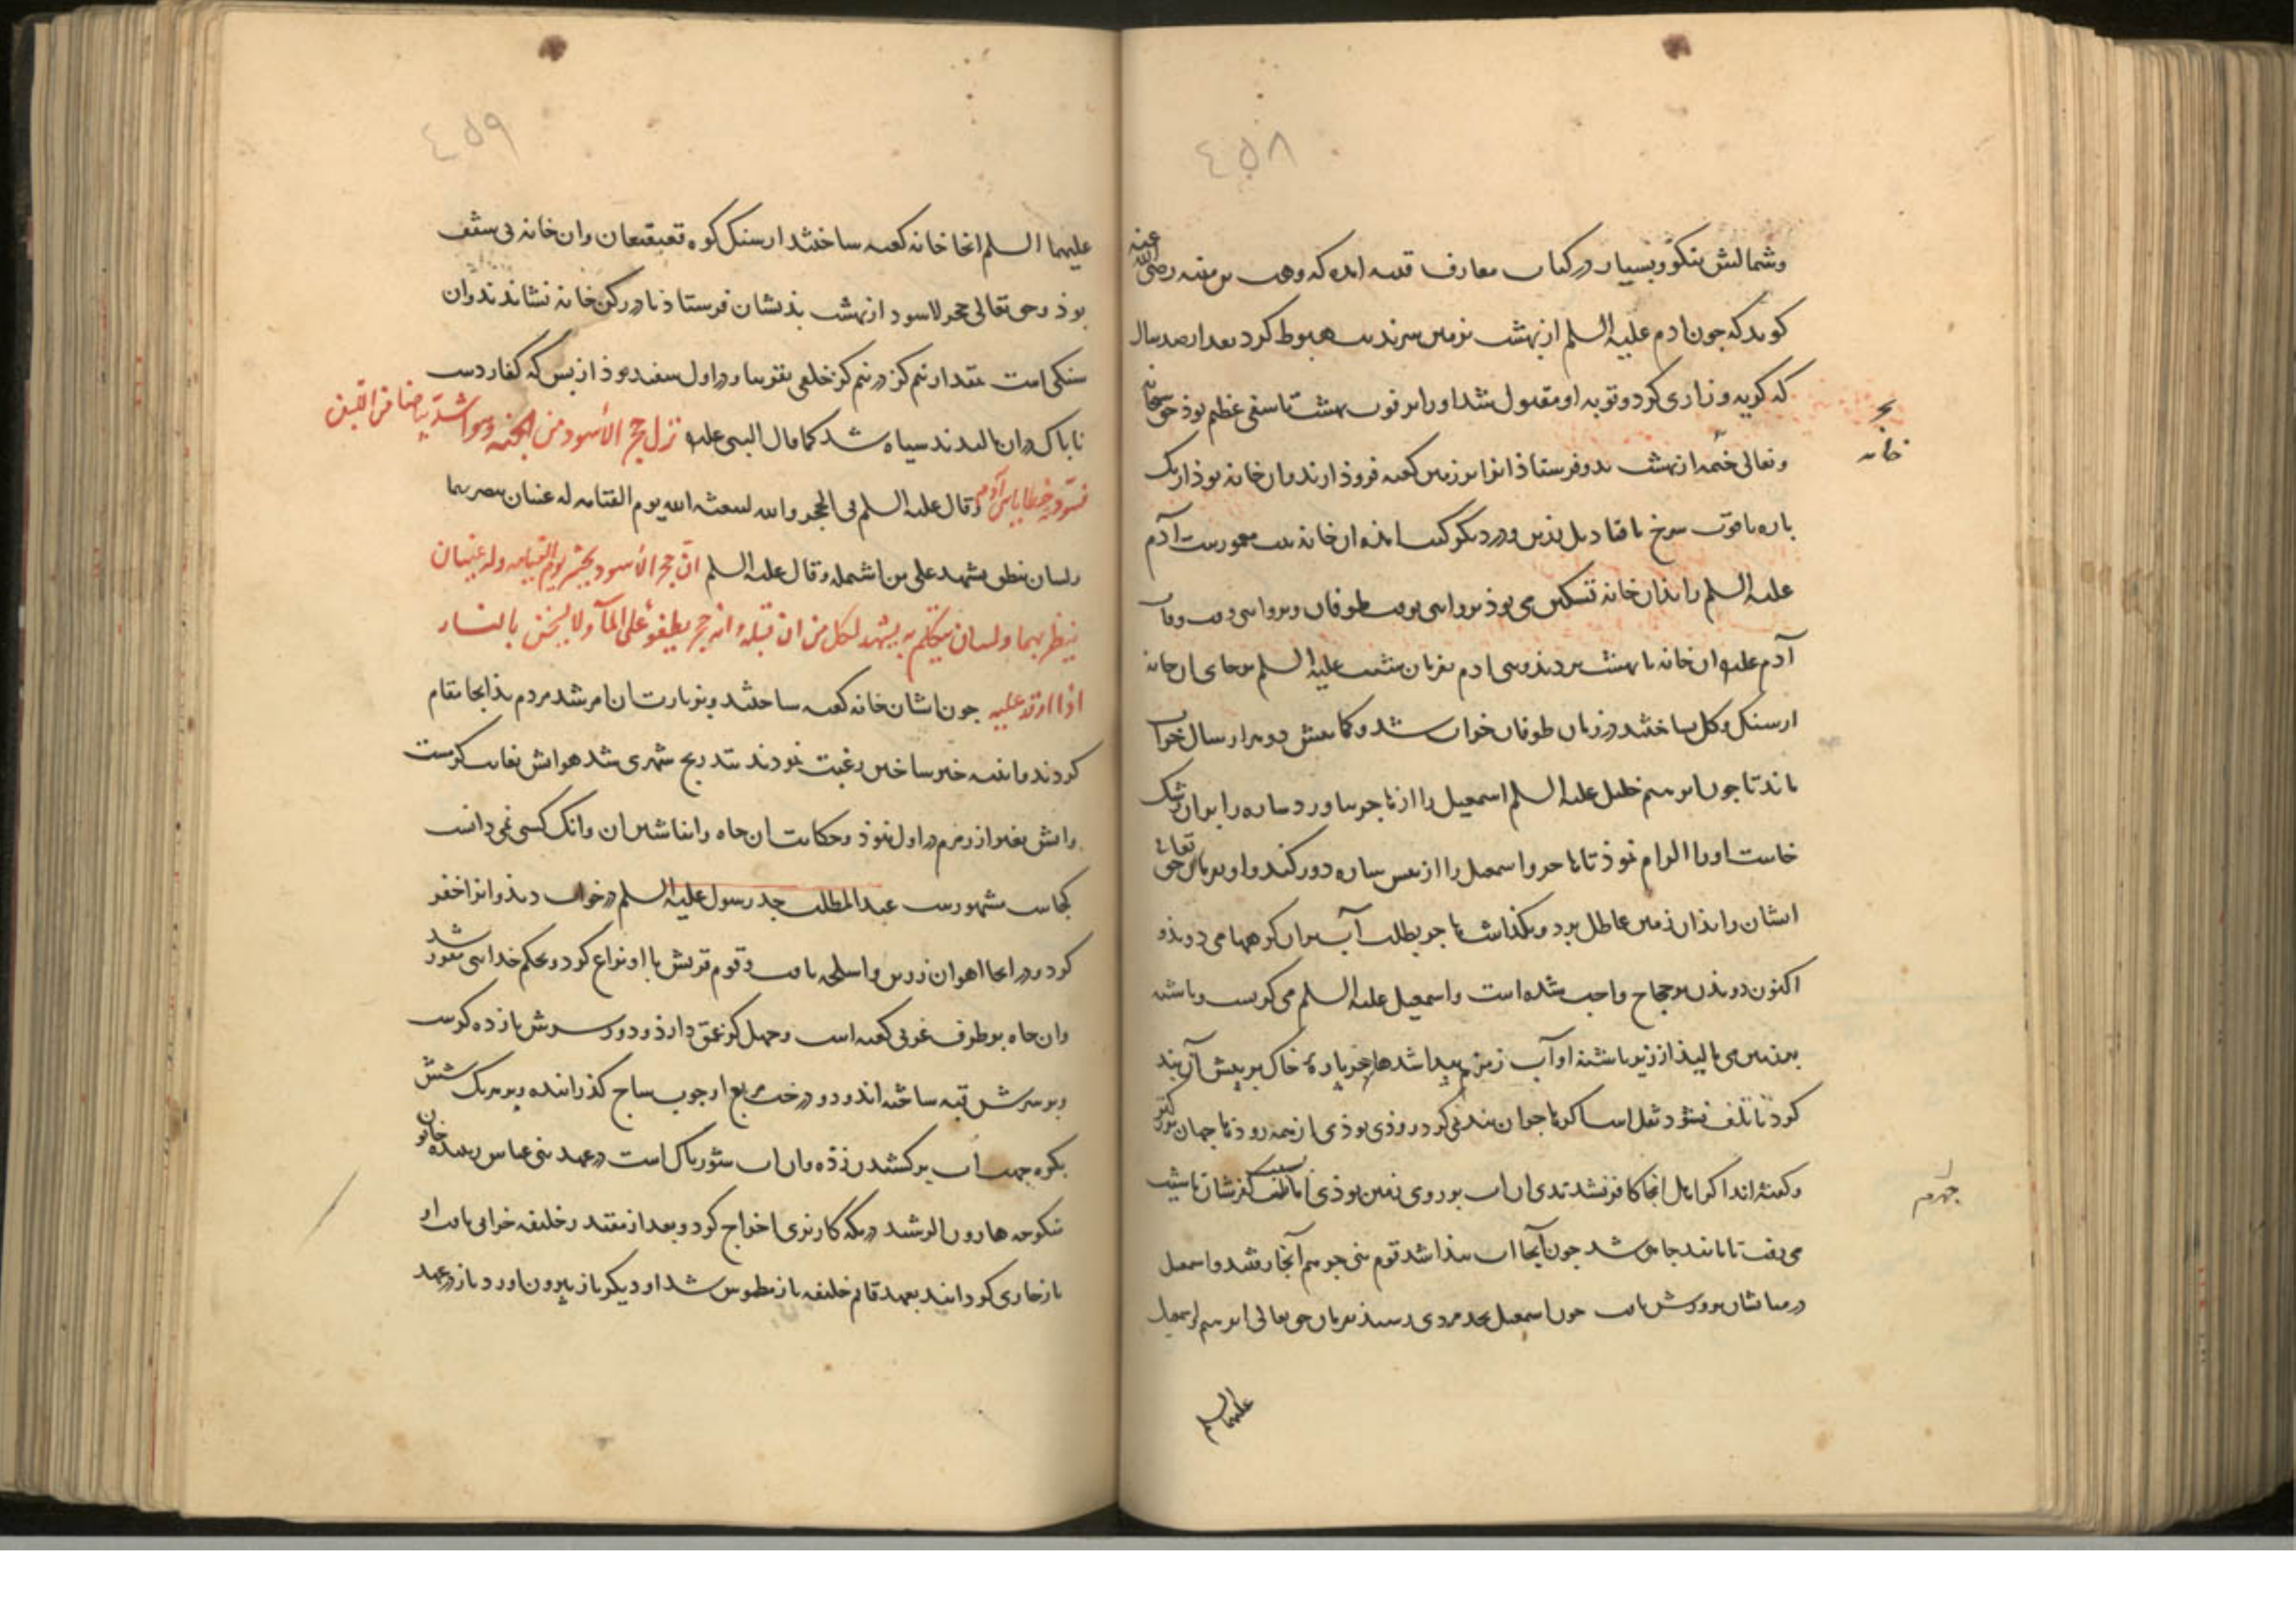 ٤٥٨
وشمالش نیکو و بسیار در کتاب معارف قتیبه آمده که وهب بن منبه رضی الله عنه
کوید که جون ادم علیه السلم از بهشت بزمین سرندیب هبوط کرد بعد از صد سال
که کریه و زاری کرد و توبه او مقبول شد او را بر فوت بهشت تاسفی عظیم بوذ حق سبحانه
وتعالی خیمه از بهشت بدو فرستاذ انرا بزمین کعبه فروذ اوردند وان خانه بوذ از یک
باره یاقوت سرخ با قنادیل زرین و در دیکر کتب امده ان خانه بیت معمورست آدم
علیه السلم را بذان خانه تسکین می بوذ بروایتی بوقت طوفان و بروایتی وقت وفات
آدم علیه ان خانه با بهشت بردند و بنی ادم بفرمان شیث علیه السلم بر جای ان خانه
از سنک و کل بساختند در زمان طوفان خراب شد و کمابیش دو هزار سال خراب
ماند تا جون ابرهیم خلیل علیه السلم اسمعیل را از هاجر بیاورد ساره را بر ان رشک
خاست او را الزام نموذ تا هاجر و اسمعیل را از بیش ساره دور کند و او بفرمان حق تعالی
ایشان را بذان زمین عاطل برد و بکذاشت هاجر بطلب آب بران کوهها می دوید و
اکنون دویدن بر حجاج واجب شده است و اسمعیل علیه السلم می کریست و باشنه
بر زمین می مالید از زیر باشنه او آب زمزم بیدا شد هاجر باره خاک بر بیش آن بند
کرد تا تلف نشود نقل است اکر هاجر ان بند نمی کرد روذی بوذی از همه روذها جهان بزرکتر
وکفته اند اکر اهل انجا کافر نشدندی ان اب بر روی زمین بوذی اما بسبب کفرشان نشیب
می رفت تا مانند جاهی شد جون آنجا اب بیذا شد قوم بنی جرهم آنجا رفتند و اسمعیل
در میانشان برورش یافت جون اسمعیل بحد مردی رسید بفرمان حق تعالی ابرهیم و اسمعیل
علیهما السلم
خانه
جرهم
٤٥٩
علیهما السلم انجا خانه کعبه ساختند از سنک کوه قعیقعان وان خانه بی سقف
بوذ وحق تعالی حجر الاسود از بهشت بذیشان فرستاذ تا در رکن خانه نشاندند وان
سنکی است بمقدار نیم کز در نیم کز خلقی تقریبا ودر اول سفید بوذ از بس که کفار دست
ناباک دران مالیدند سیاه شد کما قال النبی علیه نزل حجر الأسود من الجنه وهو اشد بیاضا من اللبن
فسودته خطایا بنی آدم وقال علیه السلم فی الحجر والله لیبعثه الله یوم القیامه له عینان یبصر بهما
ولسان ینطق یشهد علی من استلمه وقال علیه السلم ان حجر الأسود یحشر یوم القیامه وله عینان
ینظر بهما ولسان یتکلم به یشهد لکل من ان قبله انه حجر یطفو علی المآ ولا یسخن بالنار
اذا اوقد علیه جون ایشان خانه کعبه ساختند و بزیارت ان امر شد مردم بذانجا مقام
کردند و ابنیه خیر ساختن رغبت نمودند بتدریج شهری شد هوایش بغایت کرمست
وابش بغیر از زمزم در اول نبوذ وحکایت ان جاه وانباشتن ان وانک کسی نمی دانست
کجاست مشهورست عبدالمطلب جد رسول علیه السلم در خواب دیذ وانرا حفر
کرد ودر انجا اهوان زرین واسلحه یافت وقوم قریش با او نزاع کرد وبحکم خدایی مقرر شد
وان جاه بر طرف غربی کعبه است وجهل کز عمق دارذ ودور سرش یازده کزست
وبر سرش قبه ساخته اند و دو درخت مربع از جوب ساج کذرانیده وبر هر یک شش
بکره جهت آب برکشیدن زذه وان اب شورناک است در عهد بنی عباس زبیده خاتون
منکوحه هارون الرشید در مکه کاریزی اخراج کرد وبعد از مقتدر خلیفه خرابی یافت او
باز جاری کردانید بعهد قایم خلیفه باز مطموس شد او دیکر باز بیرون اورد باز در عهد